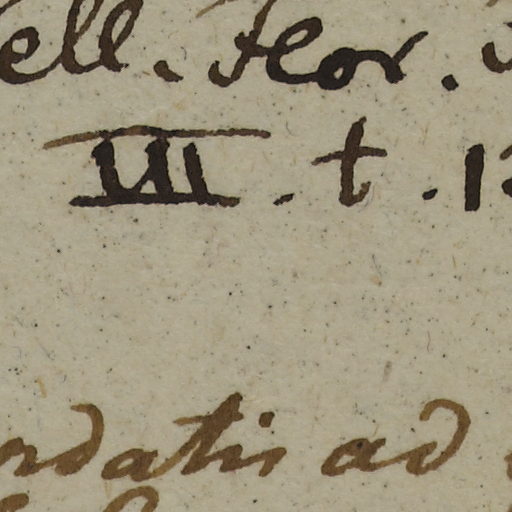 ell. Flor.
III. t. 1
ordatis ad